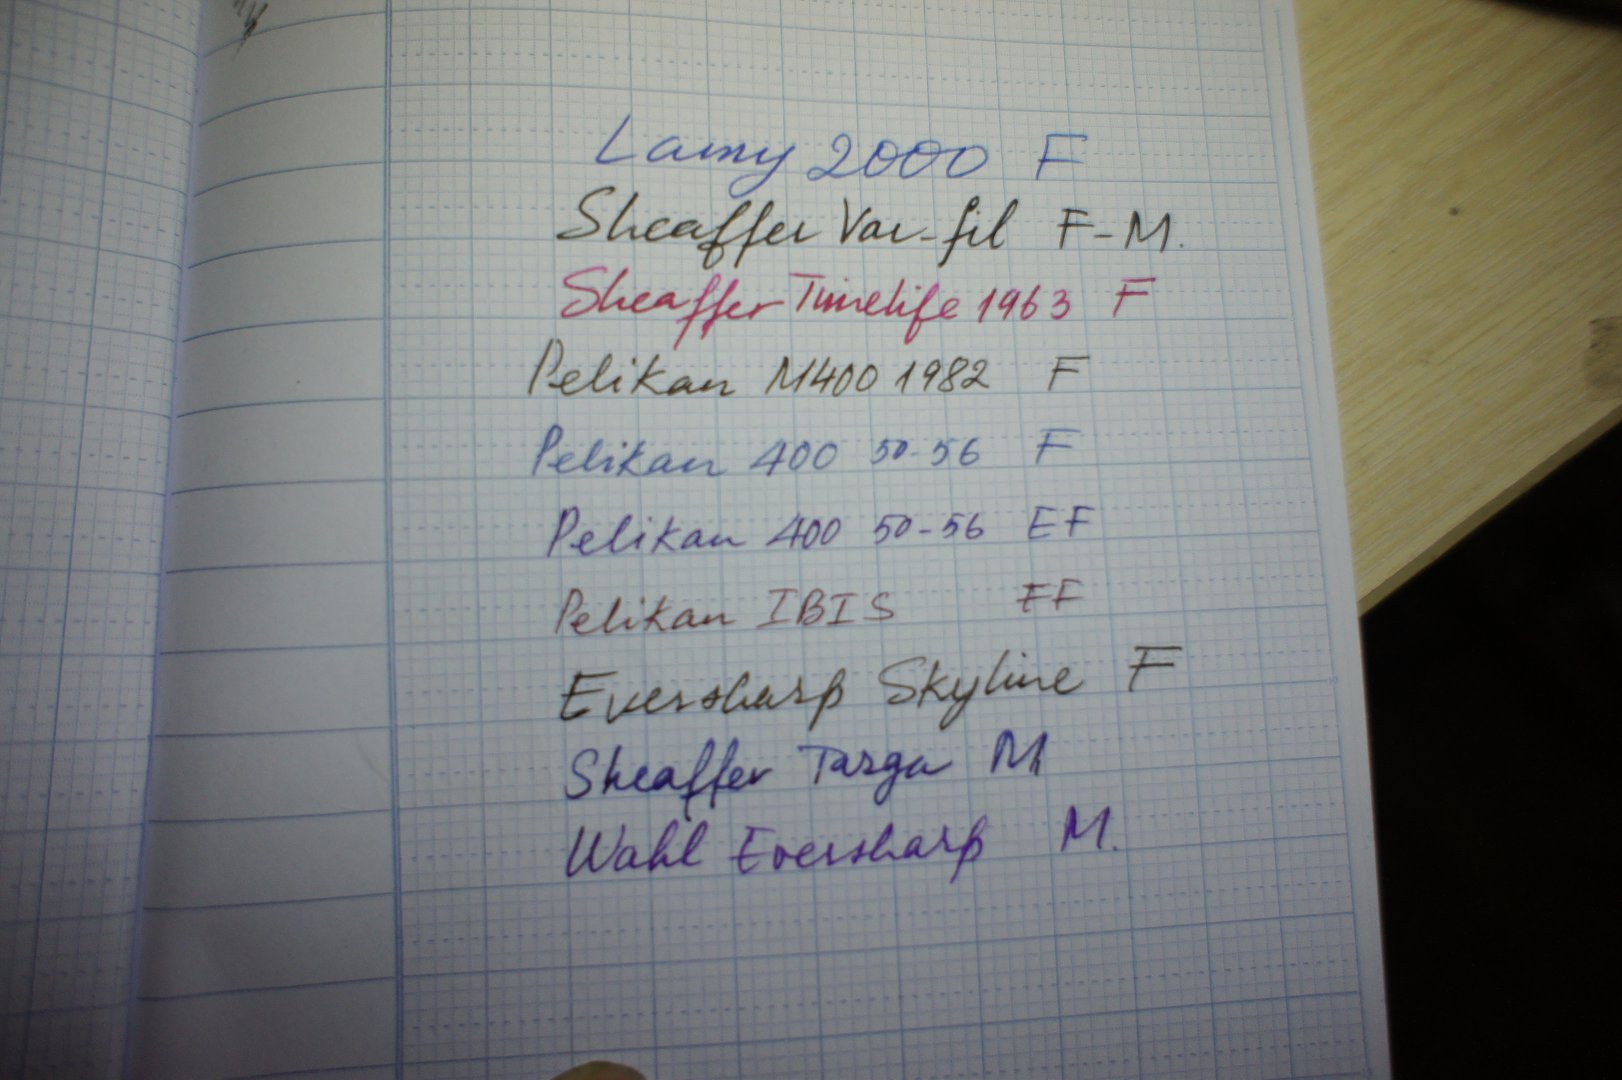 Lamy 2000 F
Sheaffer Vac-fil F-M.
Sheaffer Timelife 1963 F
Pelikan M400 1982 F
Pelikan 400 50-56 F
Pelikan 400 50-56 EF
Pelikan IBIS EF
Eversharp Skyline F
Sheaffer Targa M
Wahl Eversharp M.